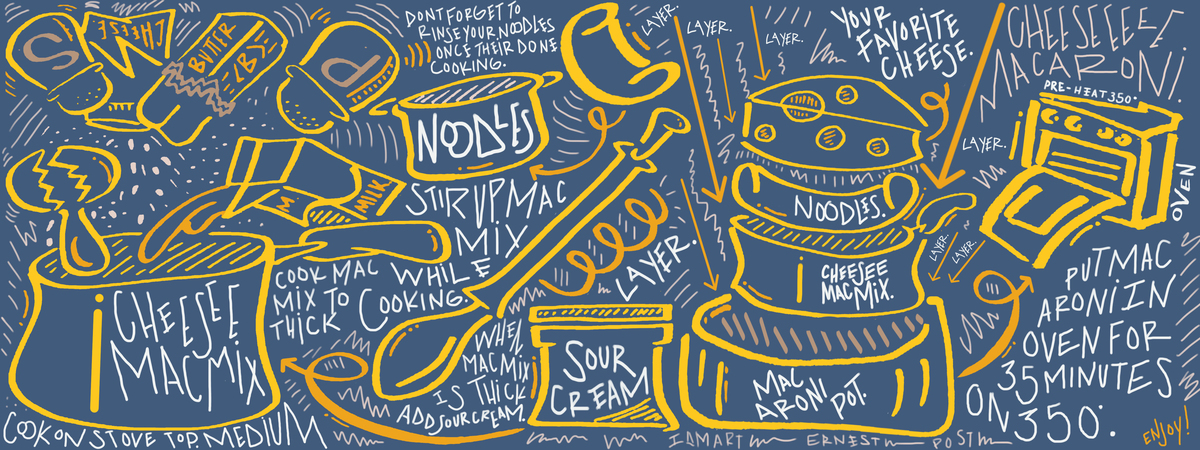 S
M
CHEESE
BUTTER
LB
P
DONT FORGET TO
RINSE YOUR NOODLES
ONCE THEIR DONE
COOKING.
NOODLES
MILK
STIR UP MAC
MIX
WHILE
COOKING.
COOK MAC
MIX TO
THICK
CHEESEE
MAC MIX
COOK ON STOVE TOP. MEDIUM
WHEN
MAC MIX
IS THICK
ADD SOUR CREAM.
SOUR
CREAM
LAYER.
LAYER.
LAYER.
LAYER.
YOUR
FAVORITE
CHEESE.
NOODLES.
CHEESEE
MAC MIX.
MAC
ARONI POT.
LAYER.
LAYER.
LAYER.
CHEESEEEE
MACARONI.
PRE-HEAT 350°
OVEN
PUT MAC
ARONI IN
OVEN FOR
35 MINUTES
ON 350°.
ENJOY!